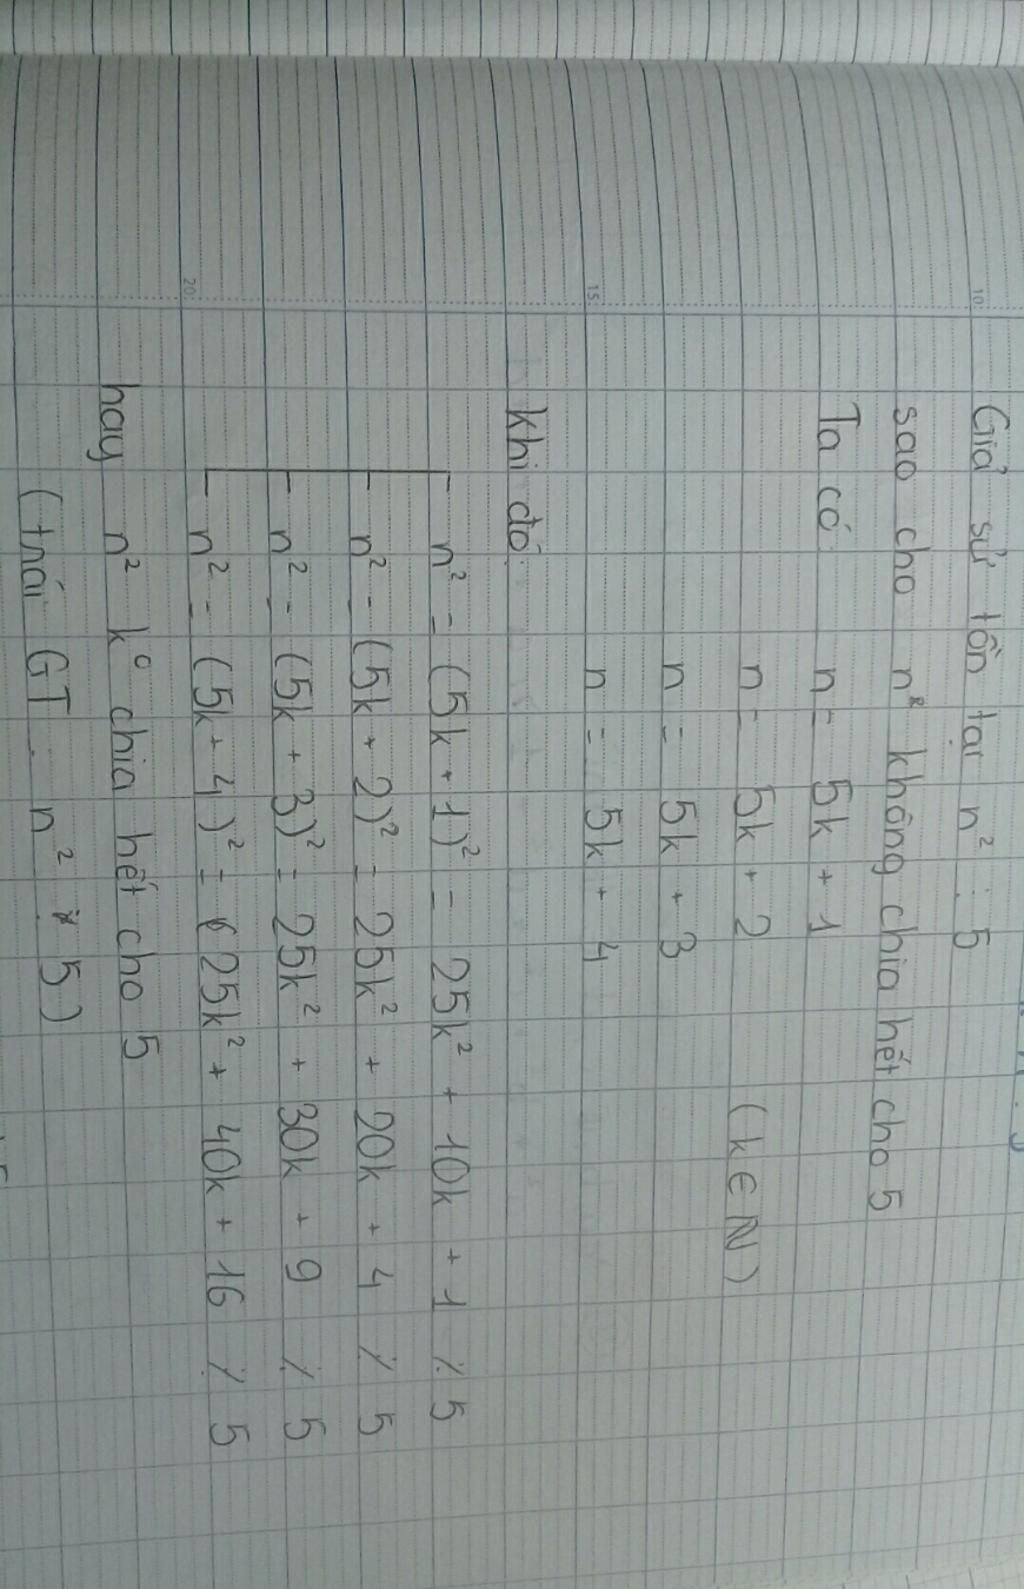 Giả sử tồn tại n² ⋮ 5
sao cho n không chia hết cho 5
Ta có n = 5k + 1
n = 5k + 2 (k ∈ N)
n = 5k + 3
n = 5k + 4
khi đó
n² = (5k + 1)² = 25k² + 10k + 1 ⋮̸ 5
n² = (5k + 2)² = 25k² + 20k + 4 ⋮̸ 5
n² = (5k + 3)² = 25k² + 30k + 9 ⋮̸ 5
n² = (5k + 4)² = 25k² + 40k + 16 ⋮̸ 5
hay n² k⁰ chia hết cho 5
(trái GT n² ⋮ 5)
10
15
20